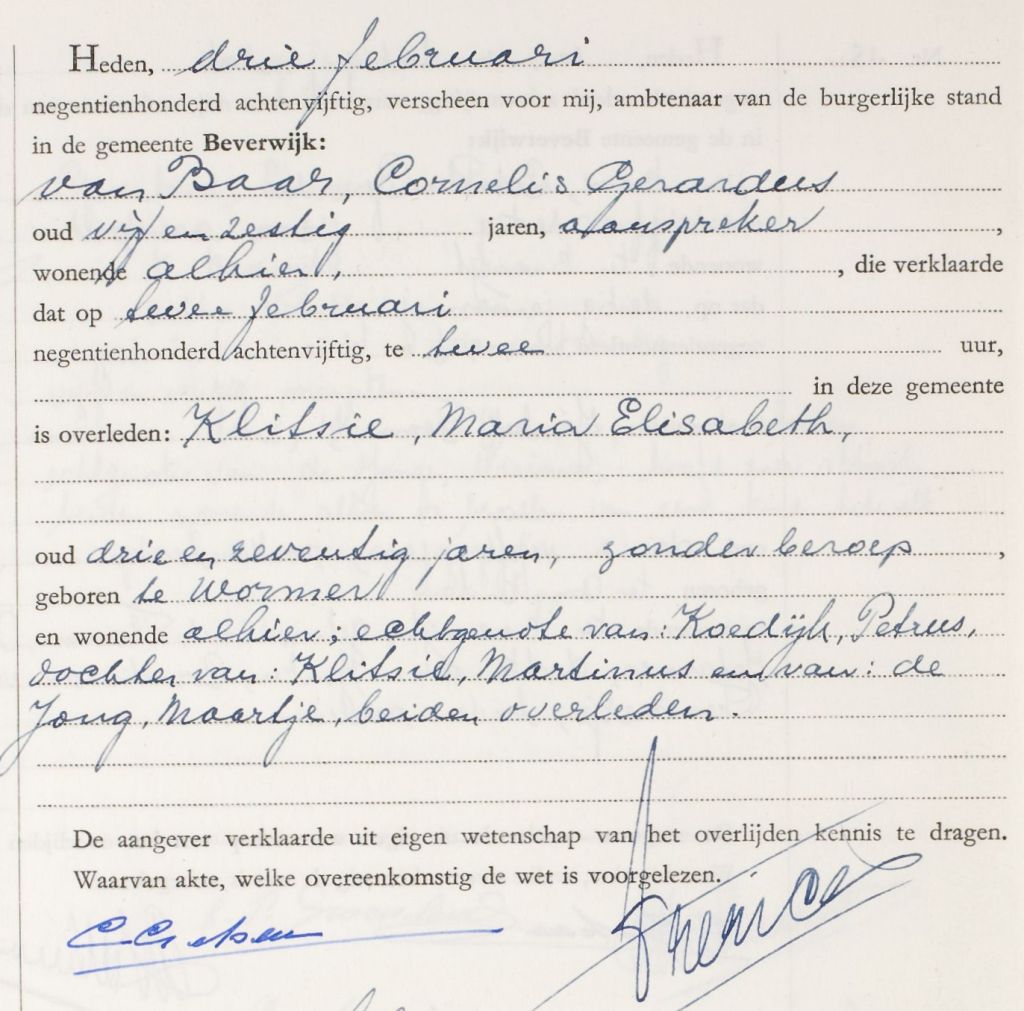 Heden, drie februari
negentienhonderd achtenvijftig, verscheen voor mij, ambtenaar van de burgerlijke stand
in de gemeente Beverwijk:
van Baar, Cornelis Gerardus
oud vijf en zestig jaren, aanspreker,
wonende alhier, , die verklaarde
dat op twee februari
negentienhonderd achtenvijftig, te twee uur,
in deze gemeente
is overleden: Klitsie, Maria Elisabeth,
oud drie en zeventig jaren, zonder beroep,
geboren te Wormer
en wonende alhier; echtgenote van: Koedijk, Petrus,
dochter van: Klitsie, Martinus en van: de
Jong, Maartje, beiden overleden.
De aangever verklaarde uit eigen wetenschap van het overlijden kennis te dragen.
Waarvan akte, welke overeenkomstig de wet is voorgelezen.